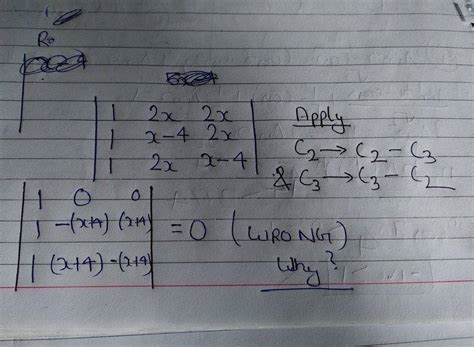 R₀
| 1 2x 2x |
| 1 x-4 2x |
| 1 2x x-4 |
Apply
C₂ → C₂ - C₃
& C₃ → C₃ - C₂
| 1 0 0 |
| 1 -(x+4) (x+4) |
| 1 (x+4) -(x+4) |
= 0 (WRONG)
Why?